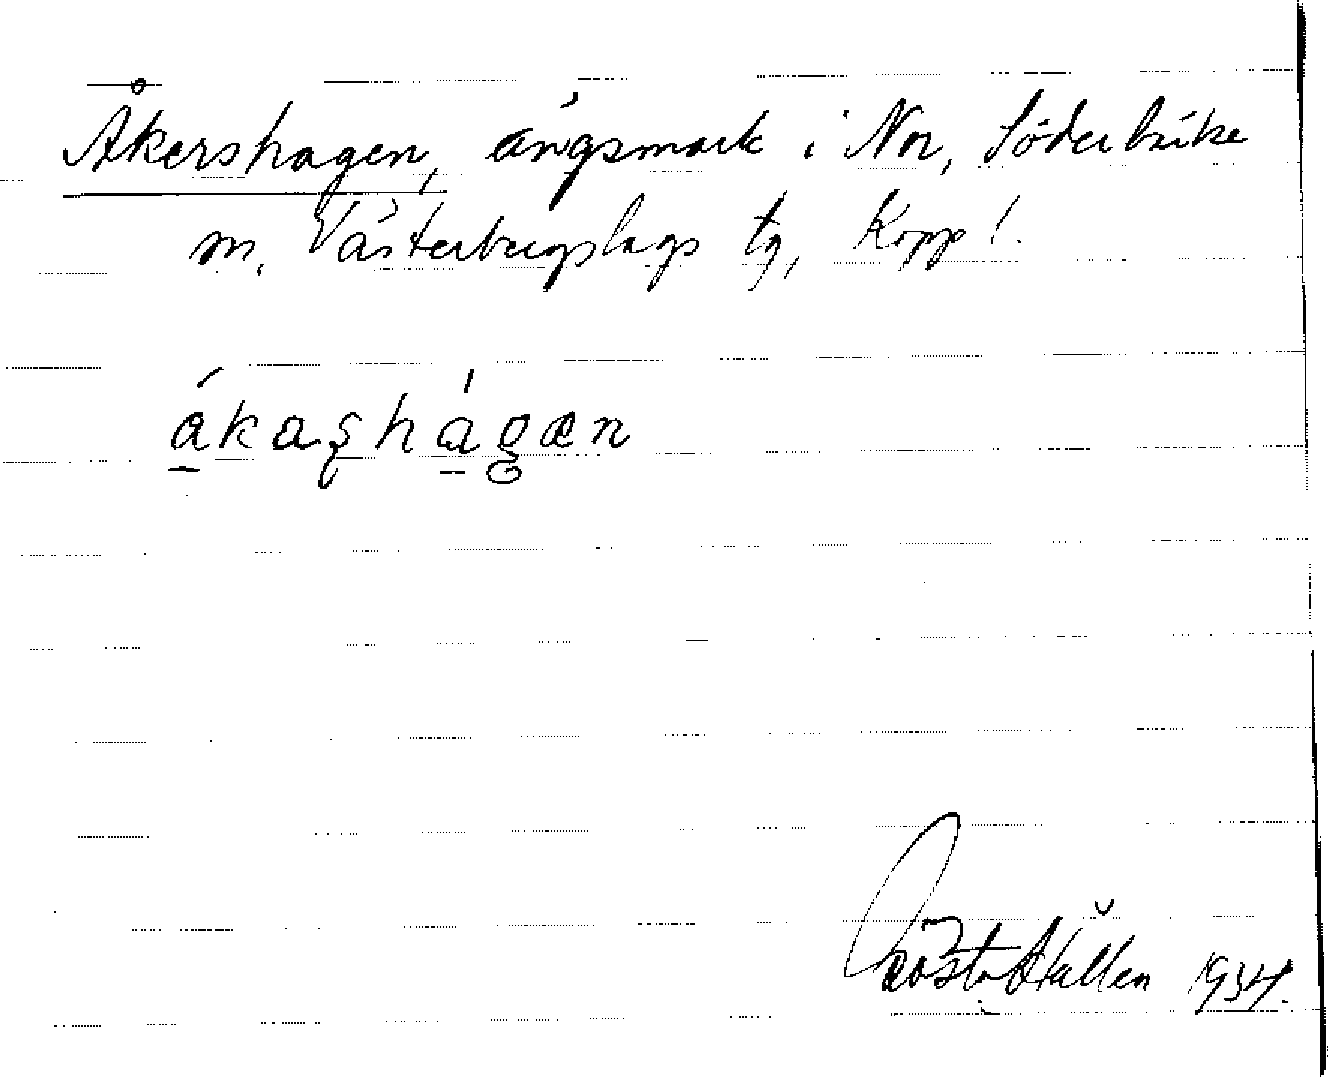 Åkershagen, ängsmark i Nor, Söderbärke
sn, Västerbergslags tg, Kopp l.
ákaşhágæn
Gösta Hallen 1934.